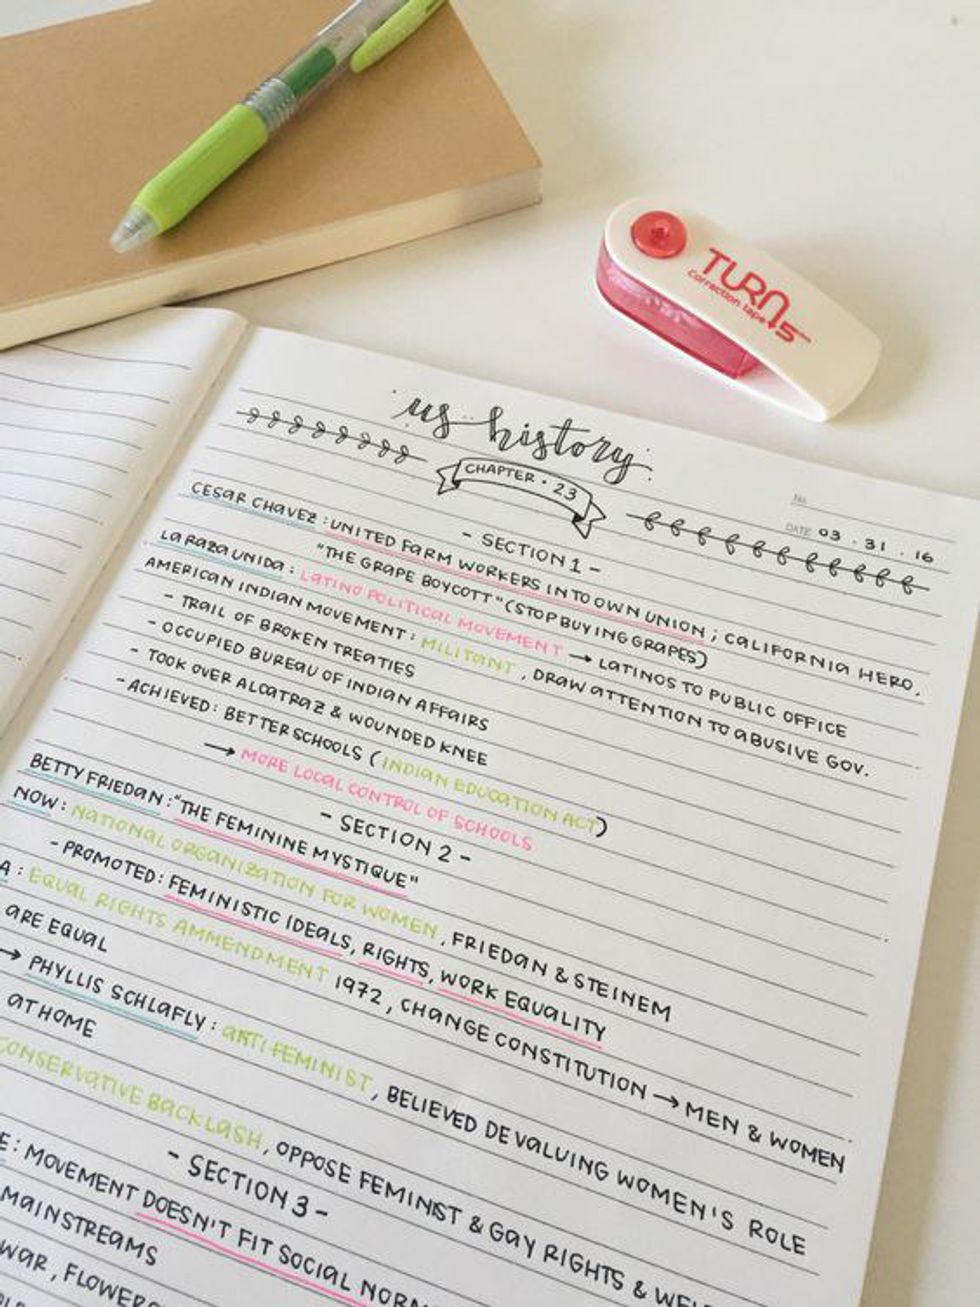 TURN
Correction tape 5
us history
CHAPTER • 23
No.
DATE 03 . 31 . 16
- SECTION 1 -
CESAR CHAVEZ : UNITED FARM WORKERS INTO OWN UNION ; CALIFORNIA HERO,
"THE GRAPE BOYCOTT" (STOP BUYING GRAPES)
LA RAZA UNIDA : LATINO POLITICAL MOVEMENT → LATINOS TO PUBLIC OFFICE
AMERICAN INDIAN MOVEMENT : MILITANT , DRAW ATTENTION TO ABUSIVE GOV.
- TRAIL OF BROKEN TREATIES
- OCCUPIED BUREAU OF INDIAN AFFAIRS
- TOOK OVER ALCATRAZ & WOUNDED KNEE
- ACHIEVED : BETTER SCHOOLS (INDIAN EDUCATION ACT)
→ MORE LOCAL CONTROL OF SCHOOLS
- SECTION 2 -
BETTY FRIEDAN : "THE FEMININE MYSTIQUE"
NOW : NATIONAL ORGANIZATION FOR WOMEN , FRIEDAN & STEINEM
- PROMOTED : FEMINISTIC IDEALS, RIGHTS, WORK EQUALITY
A : EQUAL RIGHTS AMMENDMENT 1972 , CHANGE CONSTITUTION → MEN & WOMEN
ARE EQUAL
→ PHYLLIS SCHLAFLY : ANTI FEMINIST, BELIEVED DEVALUING WOMEN'S ROLE
AT HOME
CONSERVATIVE BACKLASH, OPPOSE FEMINIST & GAY RIGHTS & WEL
- SECTION 3 -
E : MOVEMENT DOESN'T FIT SOCIAL NORM
MAINSTREAMS
WAR , FLOWER